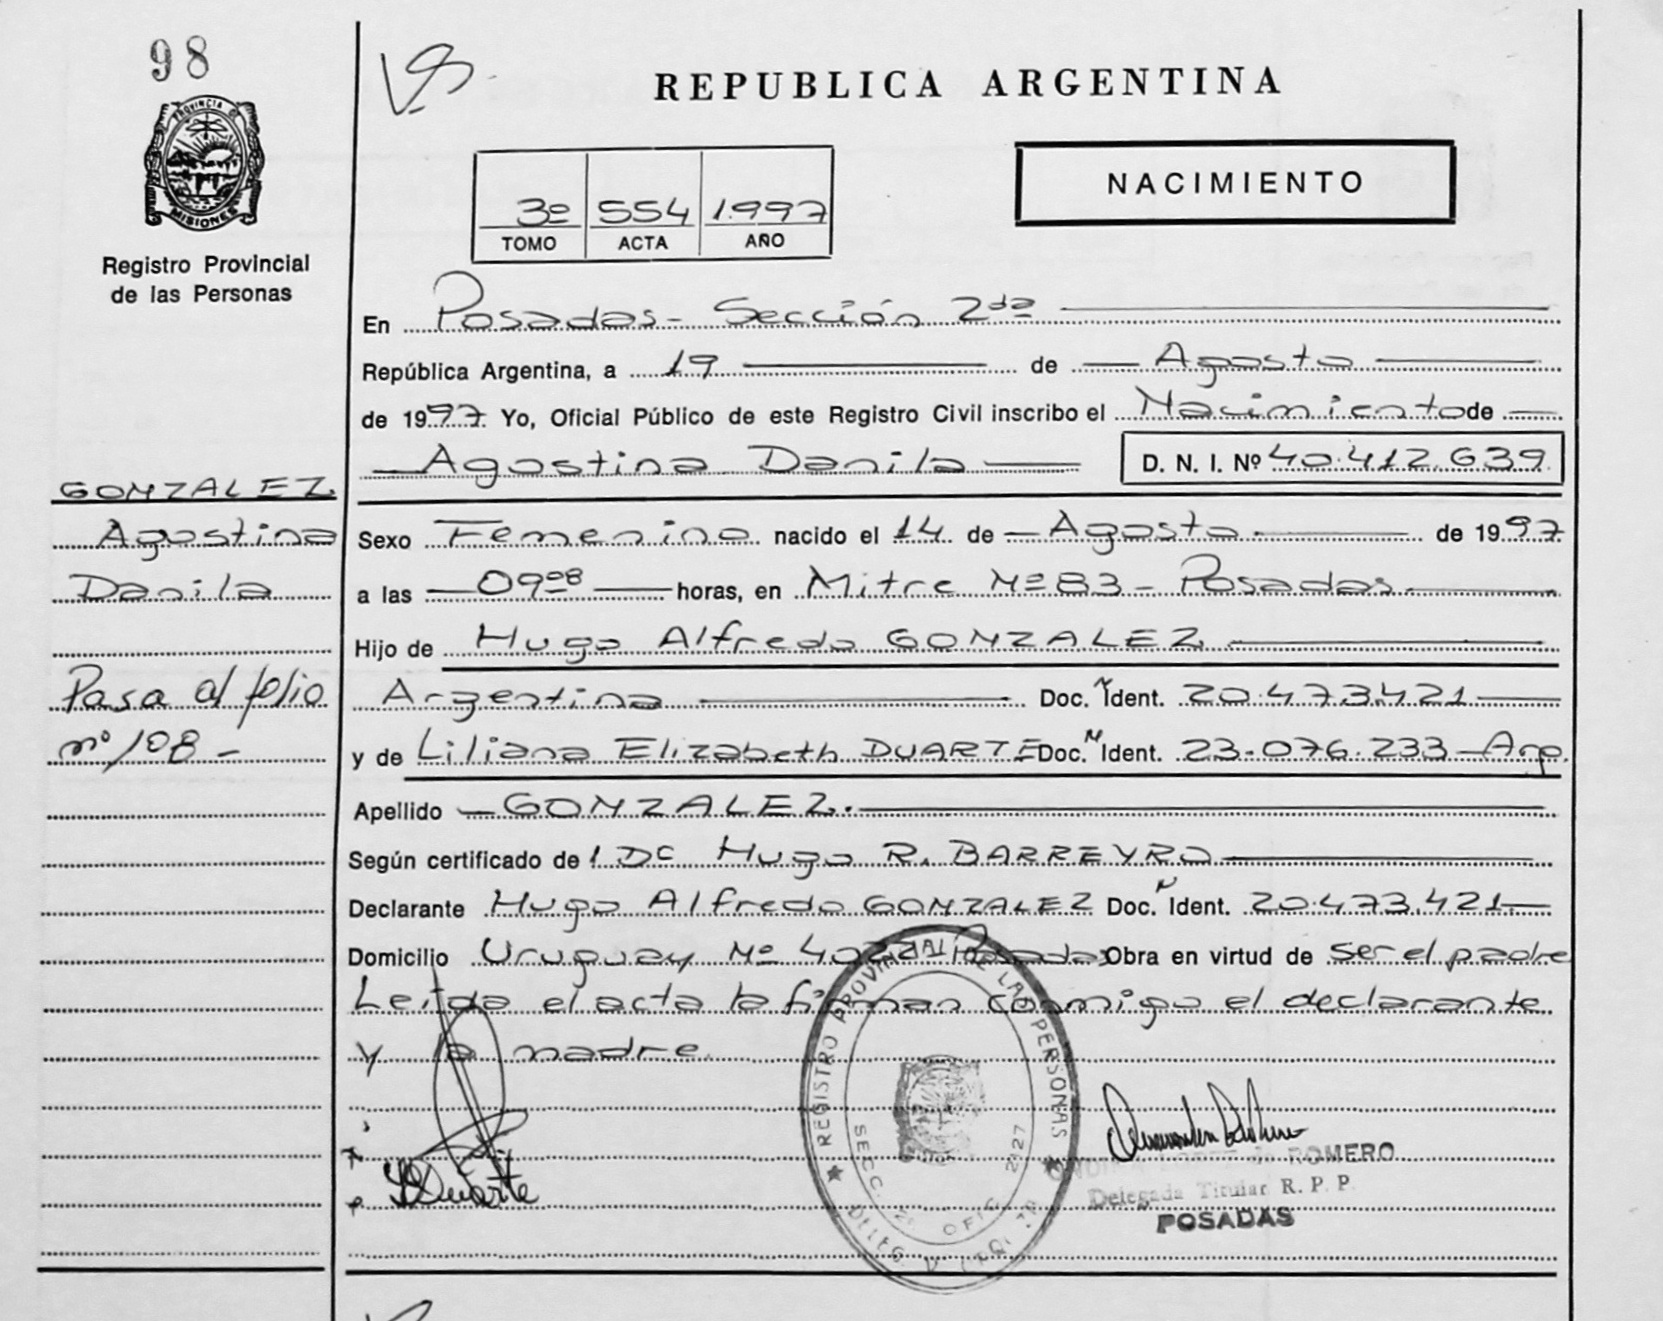 98
PROVINCIA DE
MISIONES
Registro Provincial
de las Personas
REPUBLICA ARGENTINA
NACIMIENTO
3º 554 1.997
TOMO ACTA AÑO
En Posadas - Sección 2da
República Argentina, a 19 de Agosto
de 1997 Yo, Oficial Público de este Registro Civil inscribo el Nacimiento de
Agostina Danila D. N. I. Nº 40.412.639
GONZALEZ
Agostina
Danila
Pasa al folio
nº 108 -
Sexo Femenino nacido el 14 de Agosto de 1997
a las 09º8 horas, en Mitre Nº 83 - Posadas
Hijo de Hugo Alfredo GONZALEZ
Argentina Doc. N Ident. 20.473.421
y de Liliana Elizabeth DUARTE Doc. N Ident. 23.076.233 - Arg.
Apellido GONZALEZ.
Según certificado de 1 DC Hugo R. BARREYRO
Declarante Hugo Alfredo GONZALEZ Doc. N Ident. 20.473.421
Domicilio Uruguay Nº 4022 Posadas Obra en virtud de ser el padre
Leida el acta la firman conmigo el declarante
y la madre.
Duarte
REGISTRO PROVINCIAL DE LAS PERSONAS
SECC. 2ª OFIC. 2127
LOPEZ de ROMERO
Delegada Titular R. P. P.
POSADAS